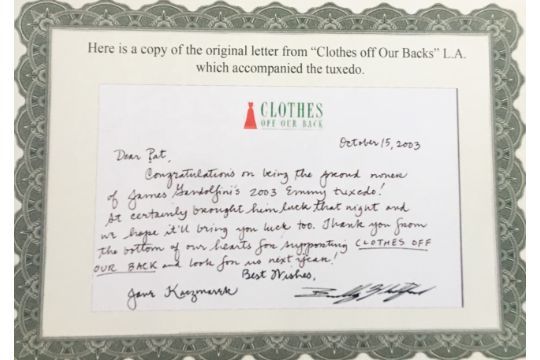 Here is a copy of the original letter from “Clothes off Our Backs” L.A.
which accompanied the tuxedo.
CLOTHES
OFF OUR BACK
October 15, 2003
Dear Pat,
Congratulations on being the proud owner
of James Gandolfini's 2003 Emmy tuxedo!
It certainly brought him luck that night and
we hope it'll bring you luck too. Thank you from
the bottom of our hearts for supporting CLOTHES OFF
OUR BACK and look for us next year!
Best Wishes,
Jane Kaczmarek